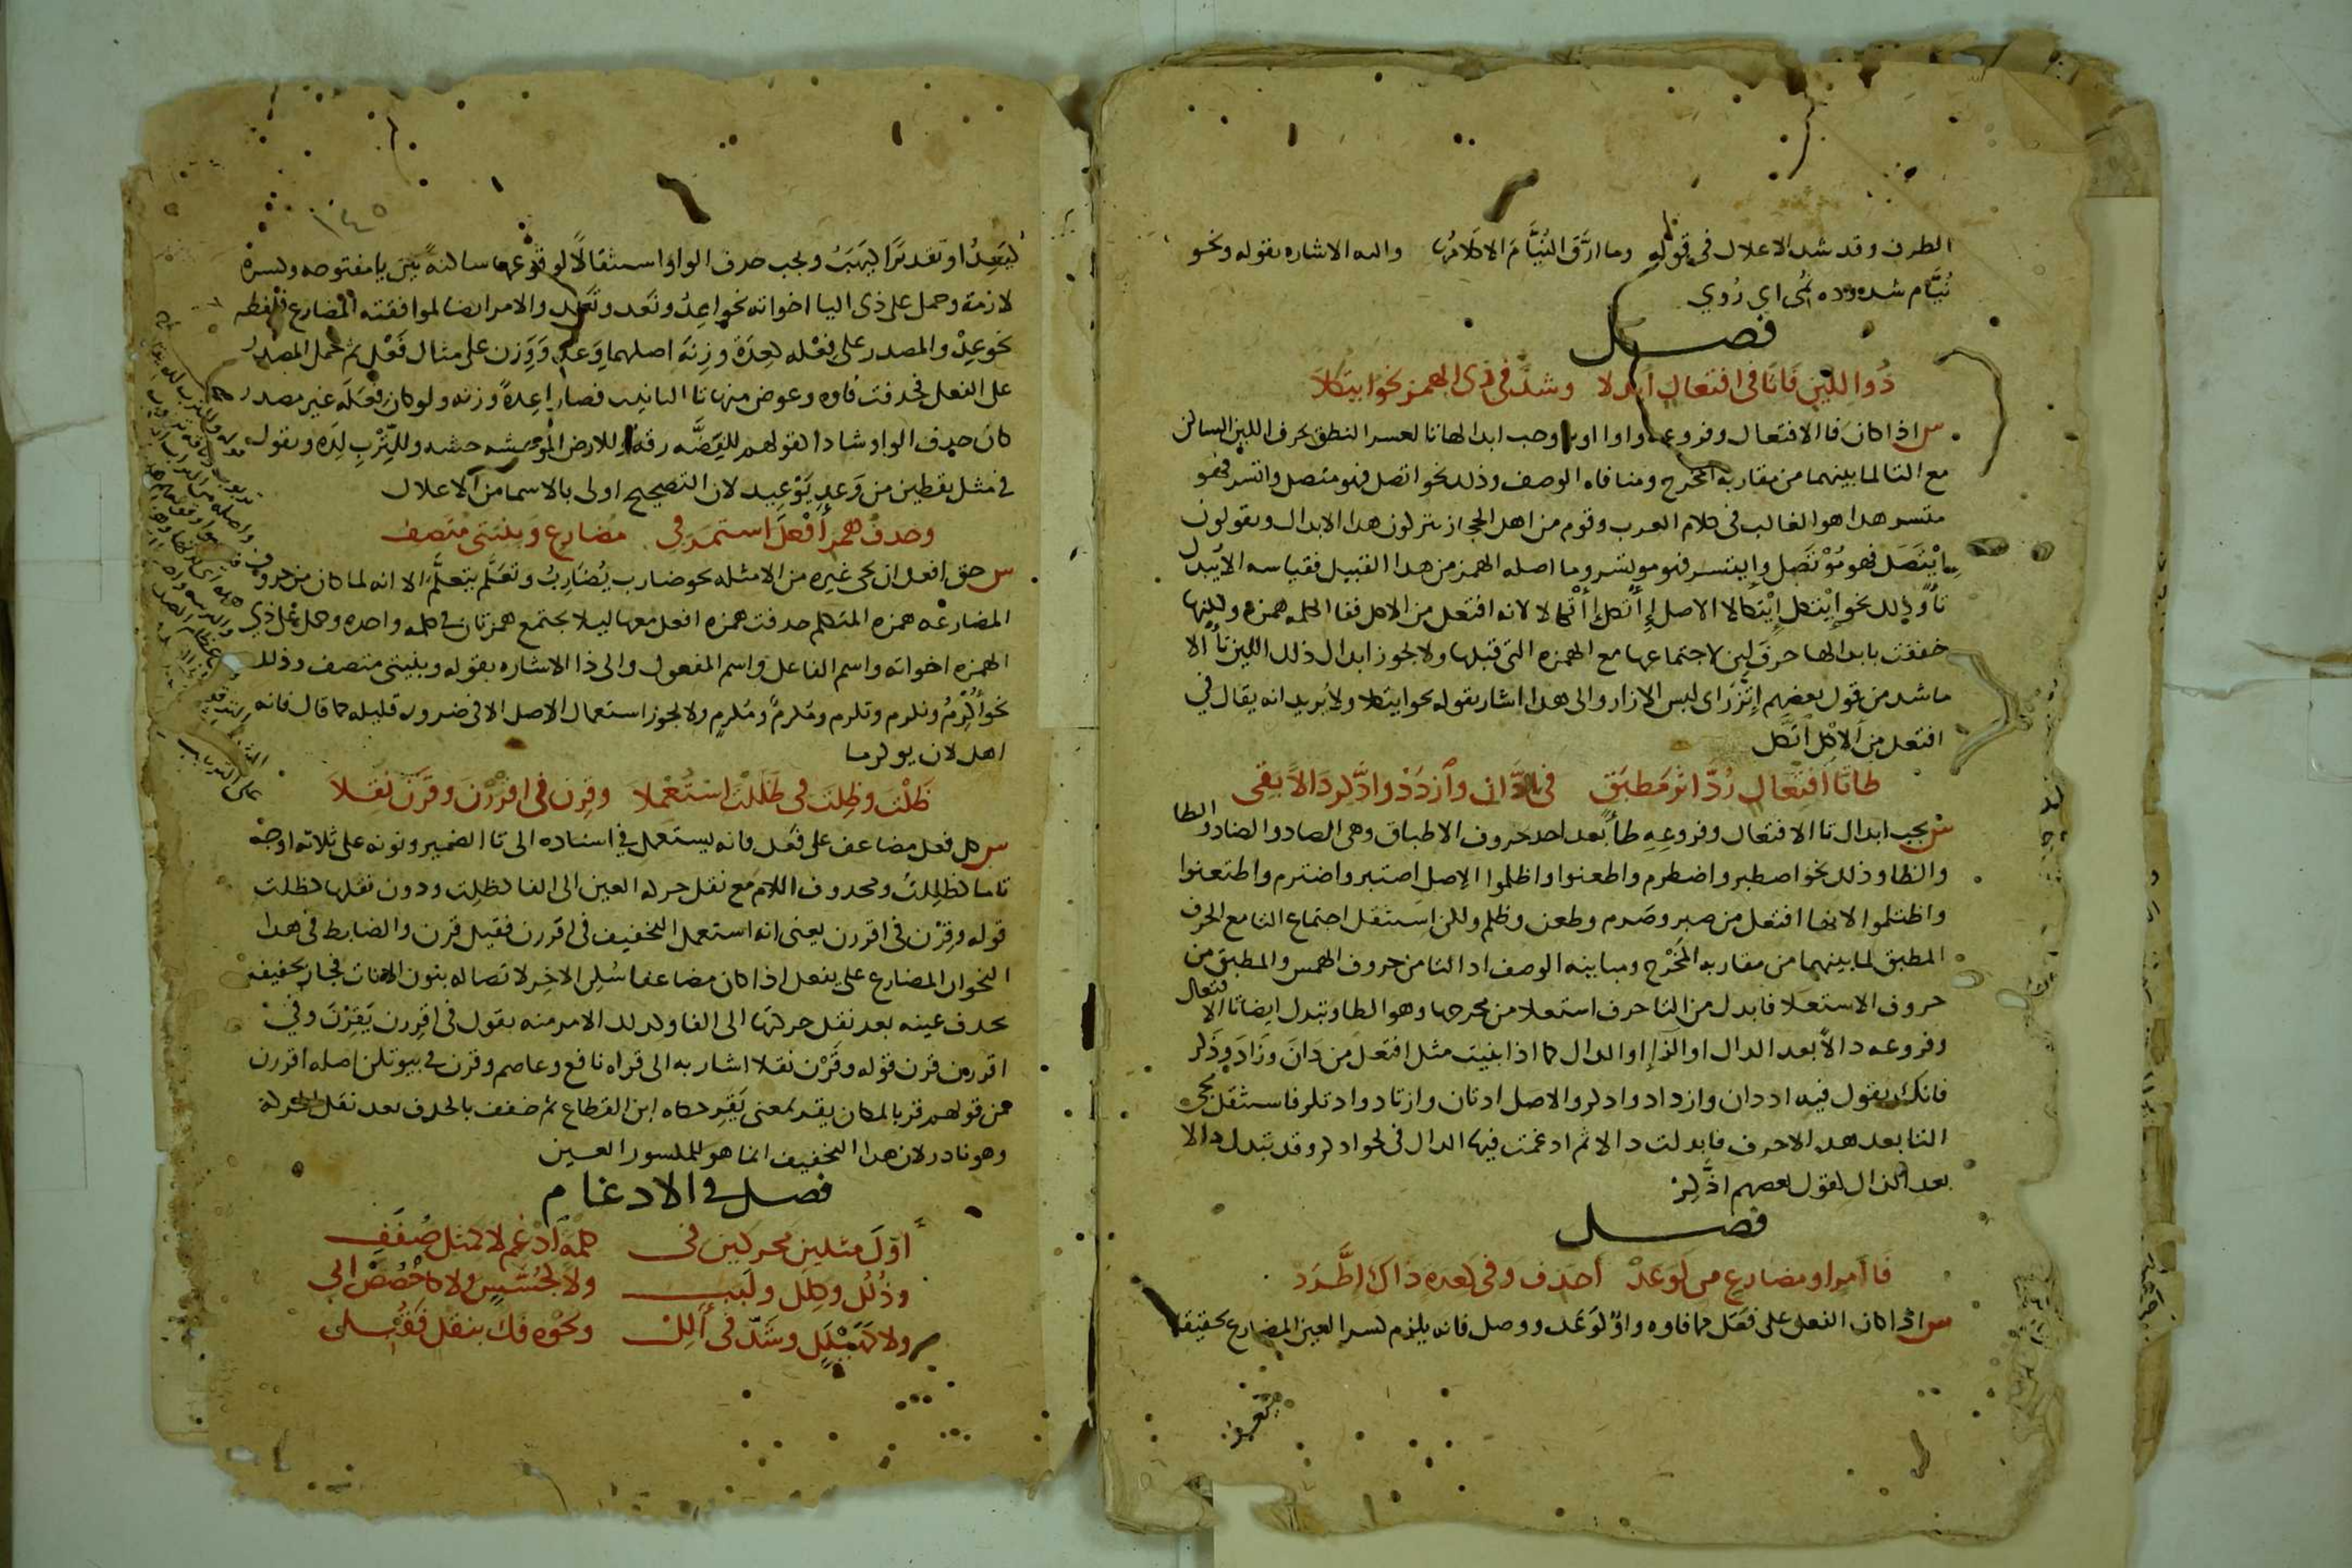 الطرف وقد شد الاعلال فى قوله وما ارّق النُيَّامَ الا كلامُها واليه الاشاره بقوله ونحو
نُيّام شدوده نُمى اى رُوي
فصل
ذُو اللين فَا تَا فى افتعال اُبدلا وشذّ فى ذى الهمز نحو ايتكلا
س اذا كان فا الافتعال وفروعه واوا او يا وجب ابدالها تا لعسر النطق بحرف اللين الساكن
مع التا لما بينهما من مقاربه المخرج ومنافاه الوصف وذلك نحو اتصل فهو متصل واتسر فهو
متسر هذا هو الغالب فى كلام العرب وقوم من اهل الحجاز يتركون هذا الابدال ويقولون
ايْتَصَل فهو مُوْتَصِل وايتسر فهو موتسر وما اصله الهمز من هذا القبيل فقياسه الا يُبدل
تاً وذلك نحو اِيْتكل اِيْتكالا الاصل اِأتكل اِأتكالا لانه افتعل من الاكل ففا الكلمه همزه ولكنها
خففت بابدالها حرفَ لين لاجتماعها مع الهمزه التى قبلها ولا يجوز ابدال ذلك اللين تاً الا
ما شد من قول بعضهم اِتَّزَرَ اى لبس الازار والى هذا اشار بقوله نحو ايتكلا ولا يُريد انه يقال في
افتعل من الاكل اتّكل
طا تا افتعال رُدّ اثر مُطبَق فى ادّان وازدَدْ وادّكر دالاً بقى
س يجب ابدال تا الافتعال وفروعِهِ طاً بعد احد حروف الاطباق وهى الصاد والضاد والطا
والظا وذلك نحو اصطبر واضطرم واطعنوا واظلموا الاصل اصتبر واضترم واطتعنوا
واظتلموا لانها افتعل من صبر وضرم وطعن وظلم ولكن استثقل اجتماع التا مع الحرف
المطبق لما بينهما من مقاربه المَخْرج ومباينه الوصف اذ التا من حروف الهمس والمطبق من
حروف الاستعلا فابدل من التا حرف استعلا من مخرجها وهو الطا وتبدل ايضا تا الافتعال
وفروعه دالاً بعد الدال او الزا او الدال كما اذا بنيت مثل افتعل من دَانَ وزَادَ وذكر
فانك تقول فيه اددان وازداد وادكر والاصل ادتان وازتاد واذتكر فاستثقل مجى
التا بعد هذه الاحرف فابدلت دالا ثم ادغمت فيها الدال فى نحو ادكر وقد تبدل دالا
بعد الذال كقول بعضهم اذّكر
فصل
فا امرٍ او مضارع من كوَعَدْ احذف وفى كعده ذاك اطّرَد
س اذا كان الفعل على فَعَل مما فاوه واوٌ كوَعَد ووصل فانه يلزم كسر العين المضارع تحقيقا
كيَعِدُ او تقديرًا كيَهَبُ ويجب حدف الواو استثقالاً لوقوعها ساكنهً بين يا مفتوحه وكسرة
لازمة وحمل على ذى اليا اخواته نحو اعِدُ ونَعد وتَعِد والامر ايضا لموافقته المضارع فى لفظه
نحو عِدْ والمصدر على فِعْله كعِدَة وزِنَه اصلهما وَعد وَوَزن على مثال فَعْل ثم حُمل المصدر
على الفعل فحدفت فاوه وعوض منها تا التانيث فصار عِدةً وزنه ولو كان فِعْلَه غير مصدر
كان حدف الواو شادا كقولهم للفِضَّه رقه وللارض الموحشه حشه وللتِّرْبِ لِدَه وتقول
في مثل يقطين من وَعدِ يَوْعِيد لان التصحيح اولى بالاسما من الاعلال
وحدفُ همز أَفْعَلَ استمرّ فى مضارع وبنيتى متصف
س حق افعل ان يجى غيره من الامثله نحو ضارب يُضَارِبُ وتعَلّم يتعلّم الا انه لما كان من حروف
المضارعْه همزه المتكلم حدفت همزه افعل معها ليلا يجتمع همزتان فى كلمه واحده وحمل على ذي
الهمزه اخواته واسم الفاعل واسم المفعول والى ذا الاشاره بقوله وبنيتى متصف وذلك
نحو أُكرمُ ونكرم وتكرم ومُكرمٌ ومُكرمٍ ولا يجوز استعمال الاصل الا فى ضرورة قليله كما قال فانه
اهل لان يوكرما
ظَلْتَ وظِلتَ فى ظَلَلْتُ اسْتُعْمِلا وقِرن فى اقرْرنَ وقَرْنَ نُقِلاَ
س كل فعل مضاعف على فَعِل فانه يستعمل في اسناده الى تا الضمير ونونه على ثلاثه اوجه
تاما كظَلِلتُ ومحدوف اللام مع نقل حركه العين الى الفا كظِلت ودون نقلها كظلت
قوله وقِرْن فى اقررن يعنى انه استعمل التخفيف فى اقررن فقيل قرن والضابط فى هدا
النحو ان المضارع على يفعل اذا كان مضاعفا سُكن الاخِر لاتصاله بنون الاناث فجاز تخفيفه
بحدف عينه بعد نقل حركتها الى الفا وكدلك الامر منه بقول فى اقرِرن يَقِرْنَ وفيْ
اقررن قرن قوله وقَرْن نقلا اشار به الى قراه نافع وعاصم وقرن في بيوتكن اصله اقررن
من قولهم قر بالمكان يقر بمعنى يَقِر حكاه ابن القطاع ثم خفف بالحدف بعد نقل الحركة
وهو نادر لان هدا التخفيف انما هو للمكسور العين
فصل فى الادغام
اوّلَ مثلين محركين فى كلمةٍ ادْغِم لا كمثل صُفَفِ
وذُلُل وكِلَل ولَبَبِ ولا كجُسَّسٍ ولا كاخْصُصَ ابى
ولا كهَيْلَل وشَذّ فى أَلِلْ ونحوه فك بنقل فَقُبِل